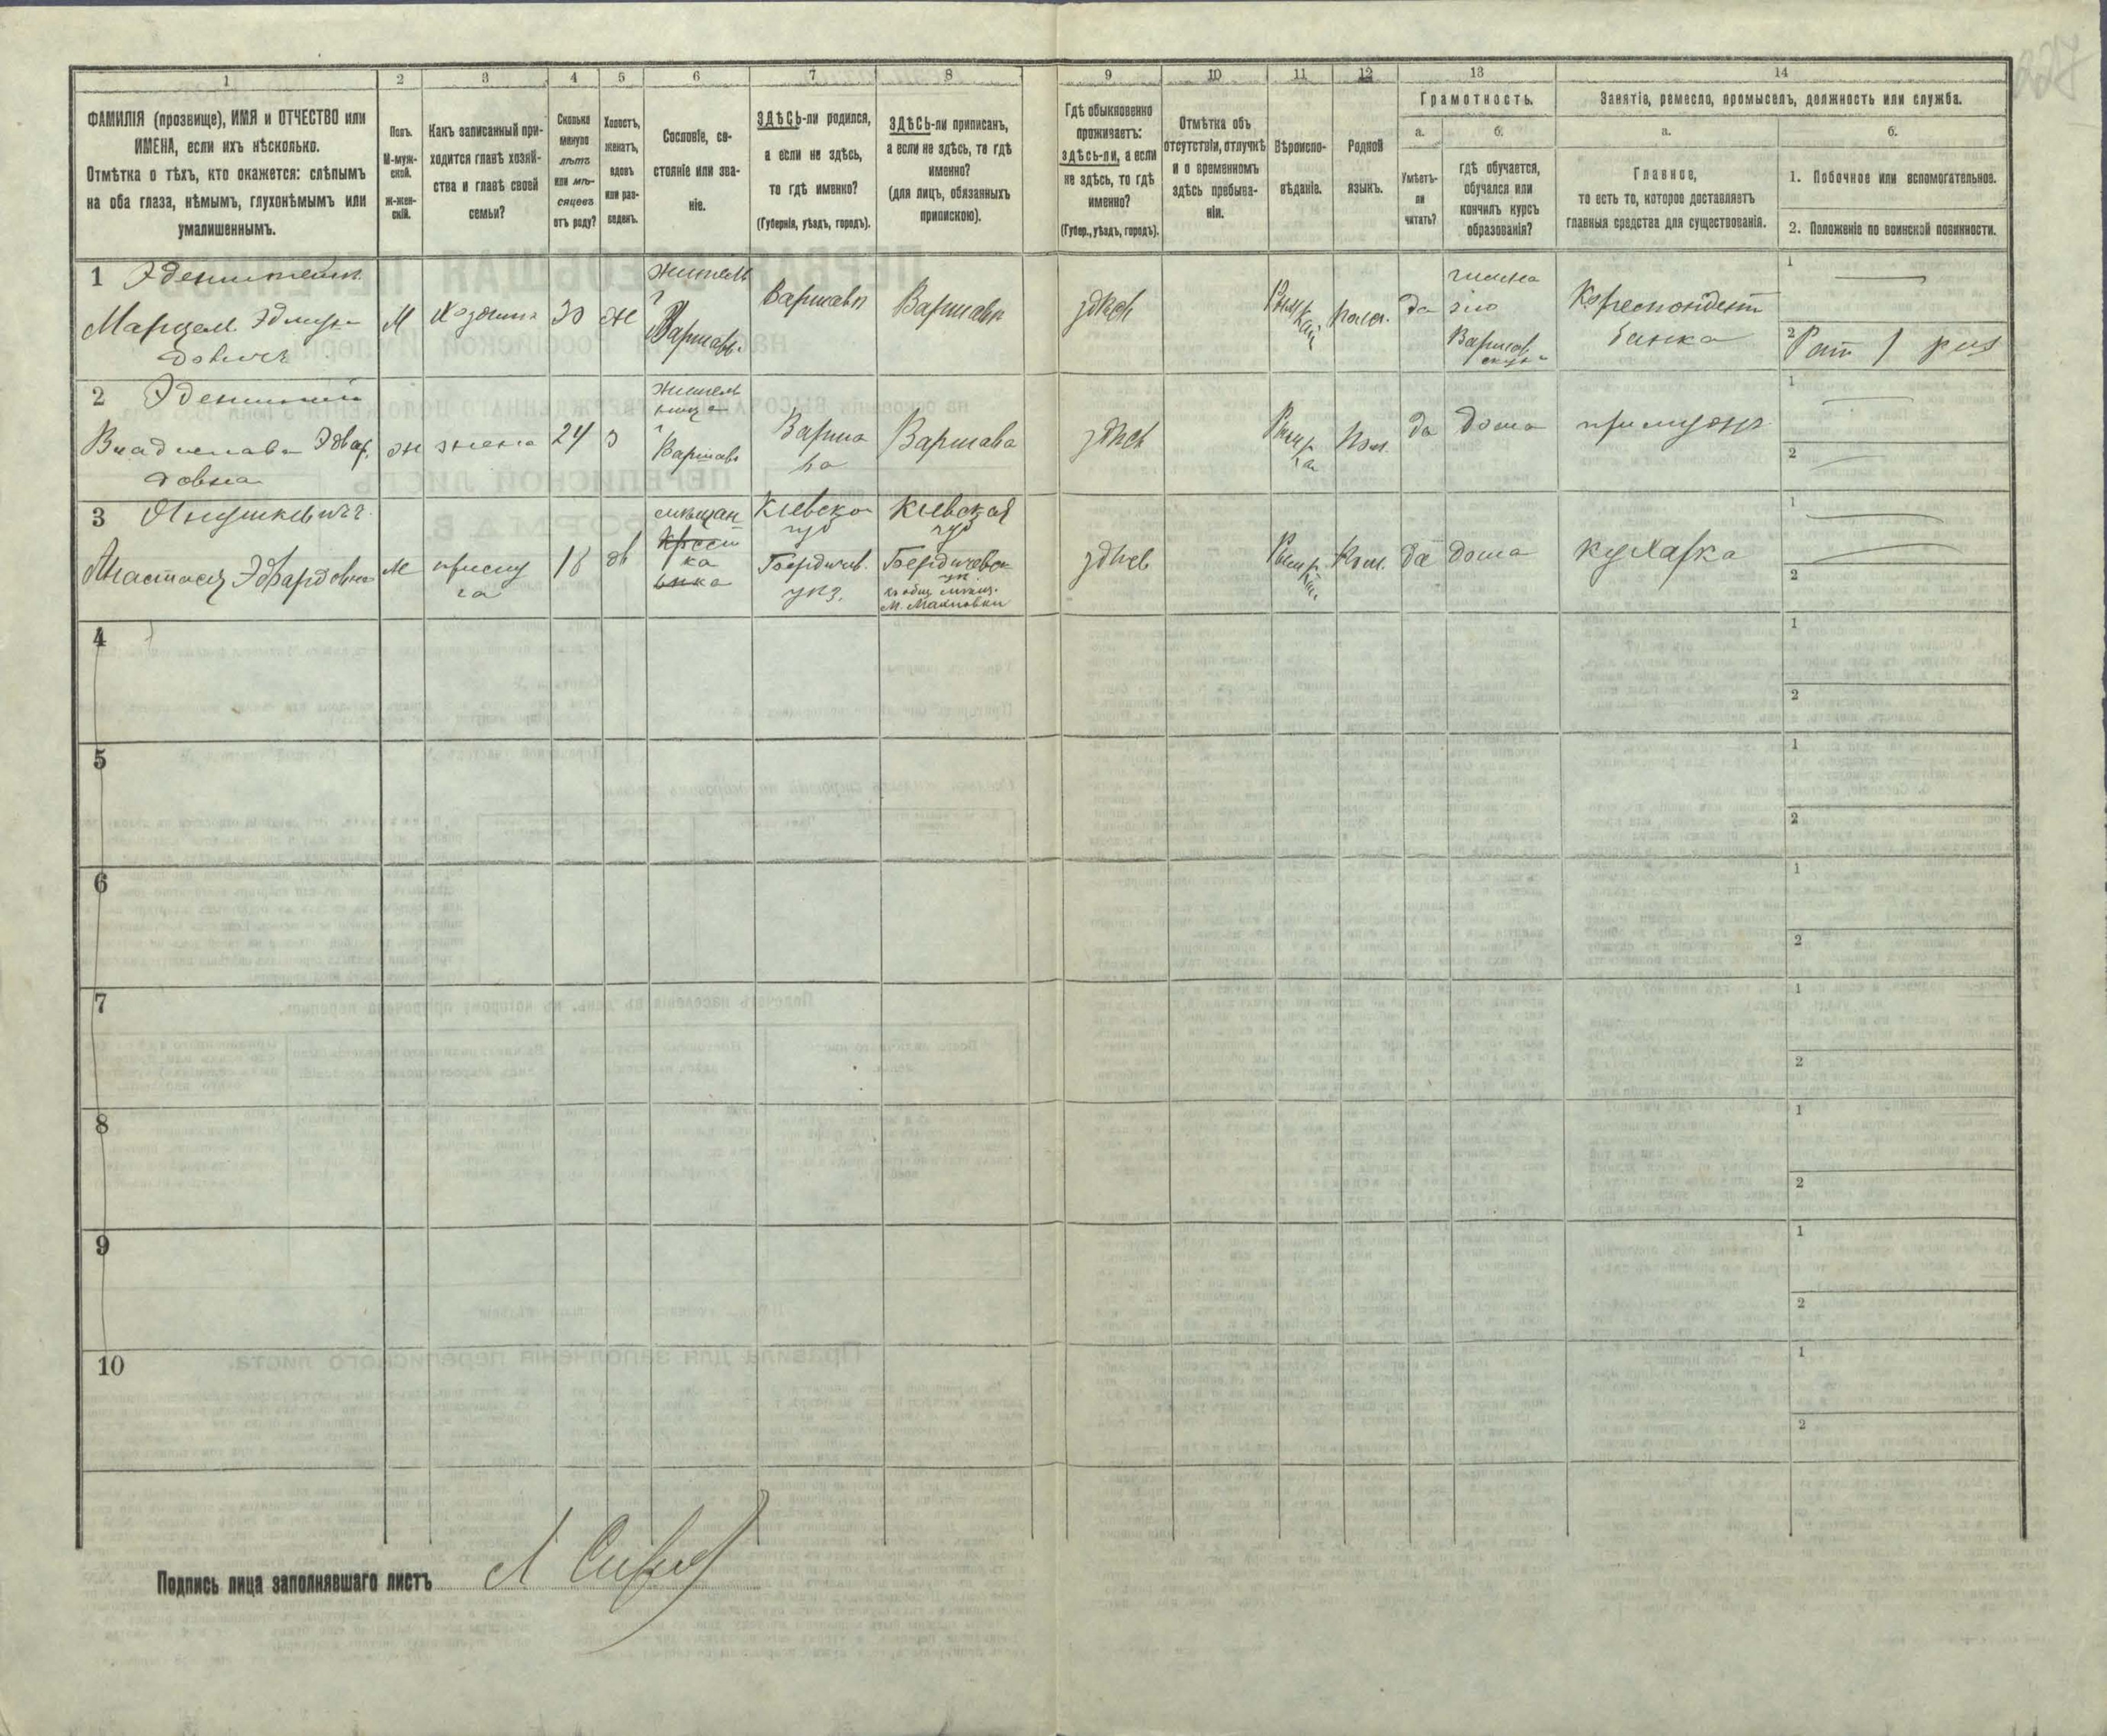 1
2
3
4
5
6
7
8
9
10
11
12
13
14
ФАМИЛІЯ (прозвище), ИМЯ и ОТЧЕСТВО или
ИМЕНА, если ихъ нѣсколько.
Отмѣтка о тѣхъ, кто окажется: слѣпымъ
на оба глаза, нѣмымъ, глухонѣмымъ или
умалишеннымъ.
Полъ.
М-муж-
ской.
Ж-жен-
скій.
Какъ записанный при-
ходится главѣ хозяй-
ства и главѣ своей
семьи?
Сколько
минуло
лѣтъ
или мѣ-
сяцевъ
отъ роду?
Холостъ,
женатъ,
вдовъ
или раз-
веденъ.
Сословіе, со-
стояніе или зва-
ніе.
ЗДѢСЬ-ли родился,
а если не здѣсь,
то гдѣ именно?
(Губернія, уѣздъ, городъ).
ЗДѢСЬ-ли приписанъ,
а если не здѣсь, то гдѣ
именно?
(для лицъ, обязанныхъ
припискою).
Гдѣ обыкновенно
проживаетъ:
здѣсь-ли, а если
не здѣсь, то гдѣ
именно?
(Губер., уѣздъ, городъ).
Отмѣтка объ
отсутствіи, отлучкѣ
и о временномъ
здѣсь пребыва-
ніи.
Вѣроиспо-
вѣданіе.
Родной
языкъ.
Грамотность.
а.
Умѣетъ-
ли
читать?
б.
гдѣ обучается,
обучался или
кончилъ курсъ
образованія?
Занятіе, ремесло, промыселъ, должность или служба.
а.
Главное,
то есть то, которое доставляетъ
главныя средства для существованія.
б.
1. Побочное или вспомогательное.
2. Положеніе по воинской повинности.
1
Марцел
М
30
Ж
житель
г
Варшавы
Варшавѣ
Варшавѣ
здѣсь
да
Варшав
Кореспондент
банка
1
2
2
ж
жена
24
з
житель
ница
г
Варшавы
Варша
ва
Варшава
здѣсь
Пол.
да
дома
1
2
3 Янушкевичъ
Анастасія Эдвардовна
прислу
га
18
дв
мѣщан
ка
Кіевско
губ
Бердичев.
уѣз.
Кіевская
губ
М. Махновки
здѣсь
да
дома
кухарка
1
2
4
1
2
5
1
2
6
1
2
7
1
2
8
1
2
9
1
2
10
1
2
Подпись лица заполнявшаго листъ